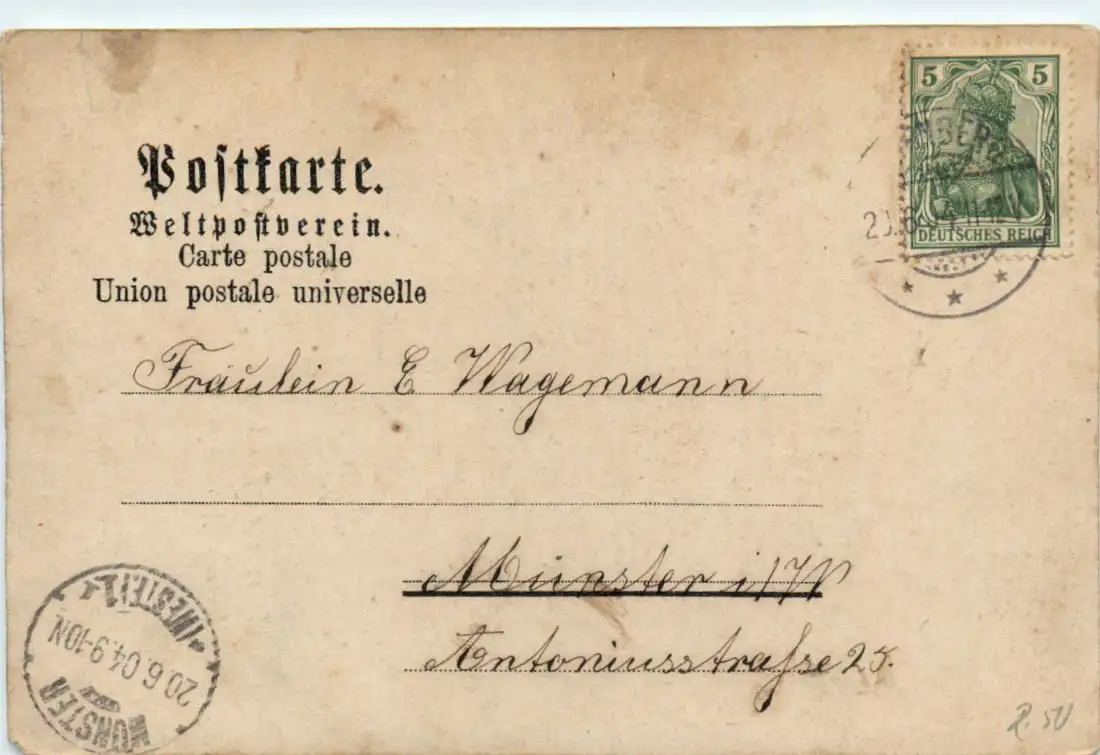 Postkarte.
Weltpostverein.
Carte postale
Union postale universelle
5 5
DEUTSCHES REICH
Fräulein E Wagemann
Münster i/W
Antoniusstraße 25.
MÜNSTER
20.6.04.9-10N
(WESTF.)1